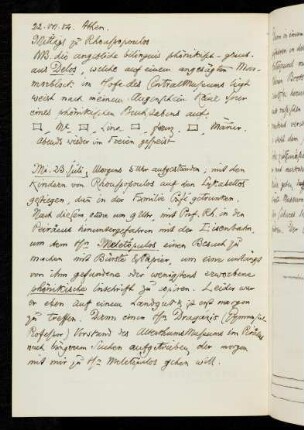 22. VII. 84. Athen.
Mittags zu Rhousopoulos
NB. die angebliche bilinguis phönikisch-griech.
aus Delos, welche auf einem angesägten Mar-
morblock im Hofe des Centralmuseums liegt
weist nach meinem Augenschein keine Spur
eines phönikischen Buchstabens auf.
Abends wieder im Freien gespeist
Mi. 23. Juli, Morgens 6 Uhr aufgestanden, mit den
Kindern von Rhousopoulos auf den Lykabettos
gestiegen, dann in der Familie Café getrunken.
Nach diesem dann um 9 Uhr mit Prof. Rh. in den
Peiräeus hinuntergefahren mit der Eisenbahn,
um dem Hrn Meletopulos einen Besuch zu
machen mit Bürste & Papier, um eine unlängst
von ihm gefundene oder wenigstens erworbene
phönikische Inschrift zu copiren. Leider war
er eben auf einem Landgut & ist erst morgen
zu treffen. Dann einen Hrn Dragatsis (Gymnasial
Professor) Vorstand des Alterthumsmuseums im Piräus
nach längerem Suchen aufgetrieben, der morgen
mit mir zu Hrn Meletopulos gehen will.